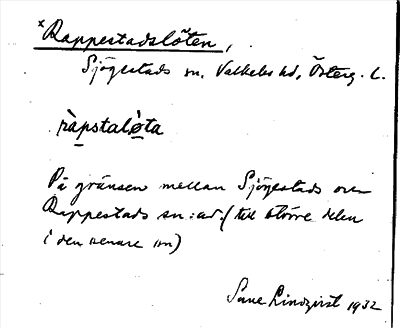 ×Rappestadslöten,
Sjögestads sn. Valkebo hd, Österg. l.
ràpstalò̱ta
På gränsen mellan Sjögestads och
Rappestads sn:ar. (till större delen
i den senare sn)
Sune Lindqvist 1932